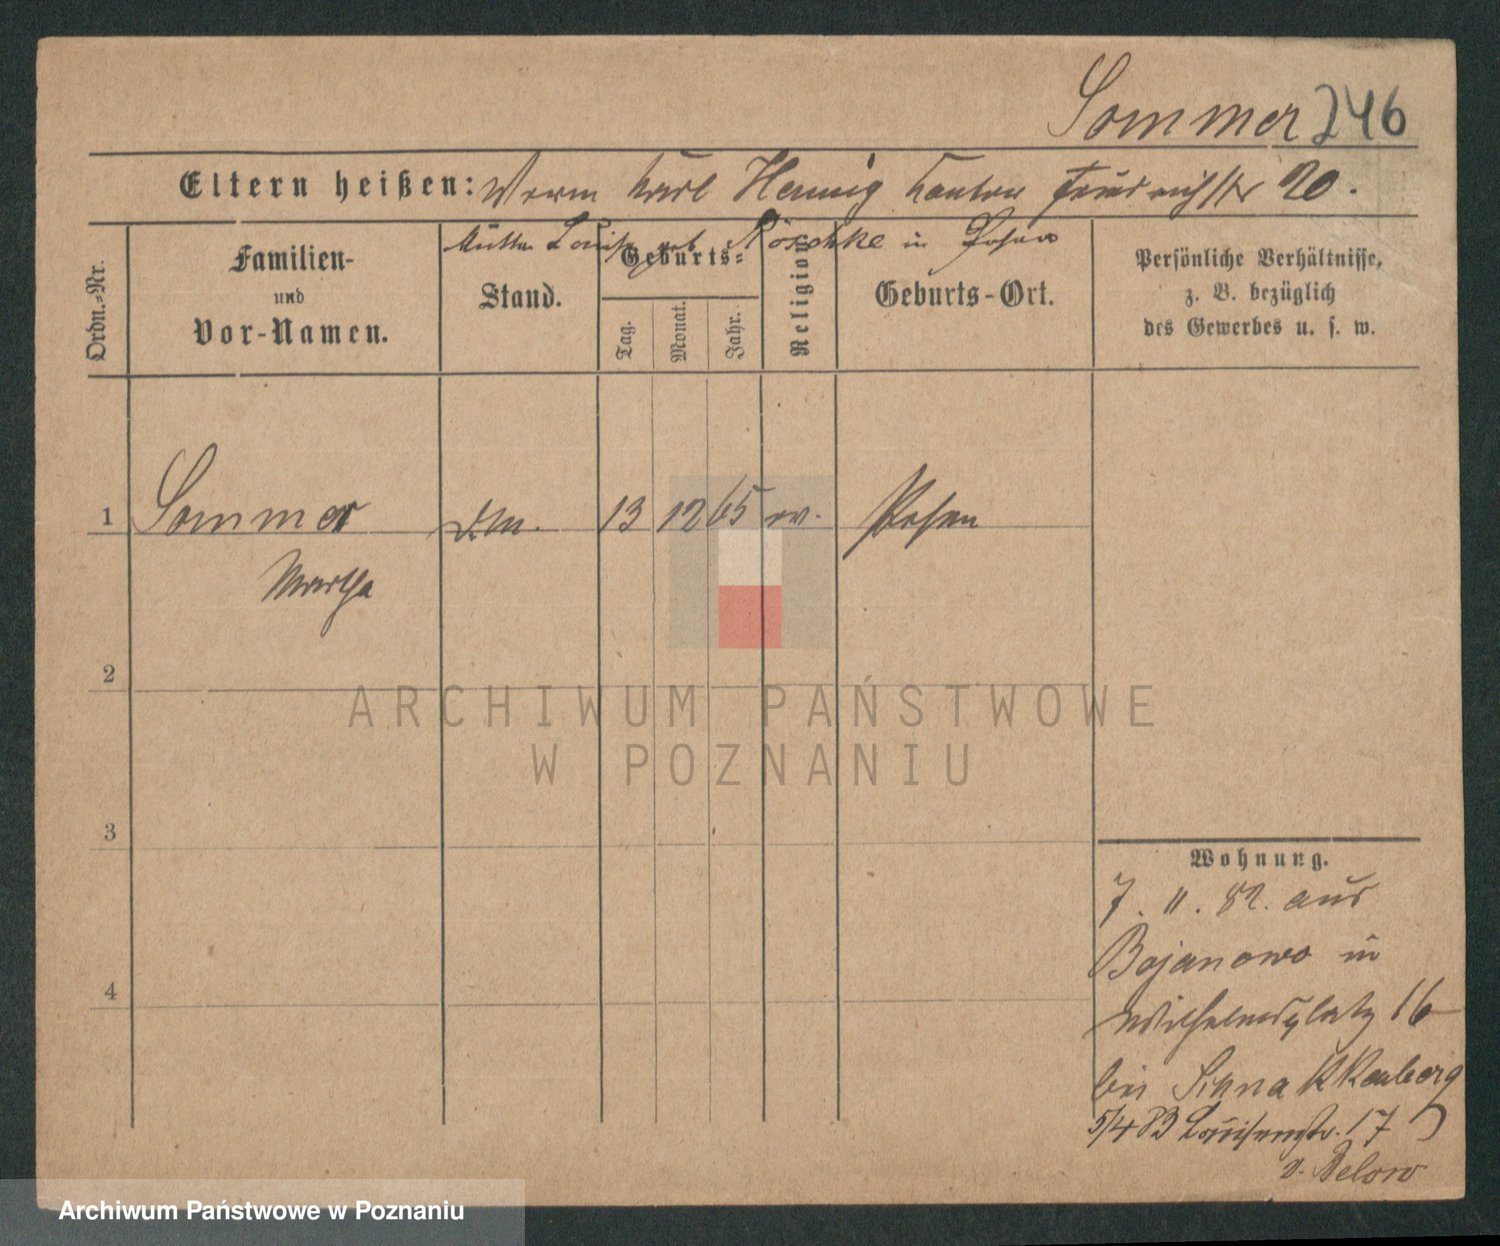 Sommer 246
Eltern heißen: Karl Hennig Kantor Friedrichstr 20.
Mutter Louise geb. Röschke in Posen
Ordn.-Nr.
Familien-
und
Vor-Namen.
Stand.
Geburts-
Tag.
Monat.
Jahr.
Religion
Geburts-Ort.
Persönliche Verhältnisse,
z. B. bezüglich
des Gewerbes u. s. w.
1 Sommer 13 12 65 ev. Posen
Martha
2
3
4
Wohnung.
7. 11. 82. aus
Bojanowo in
Wilhelmsplatz 16
bei Schnakkenberg
5/4 83 Louisenstr. 17
v. Below
ARCHIWUM PAŃSTWOWE
W POZNANIU
Archiwum Państwowe w Poznaniu